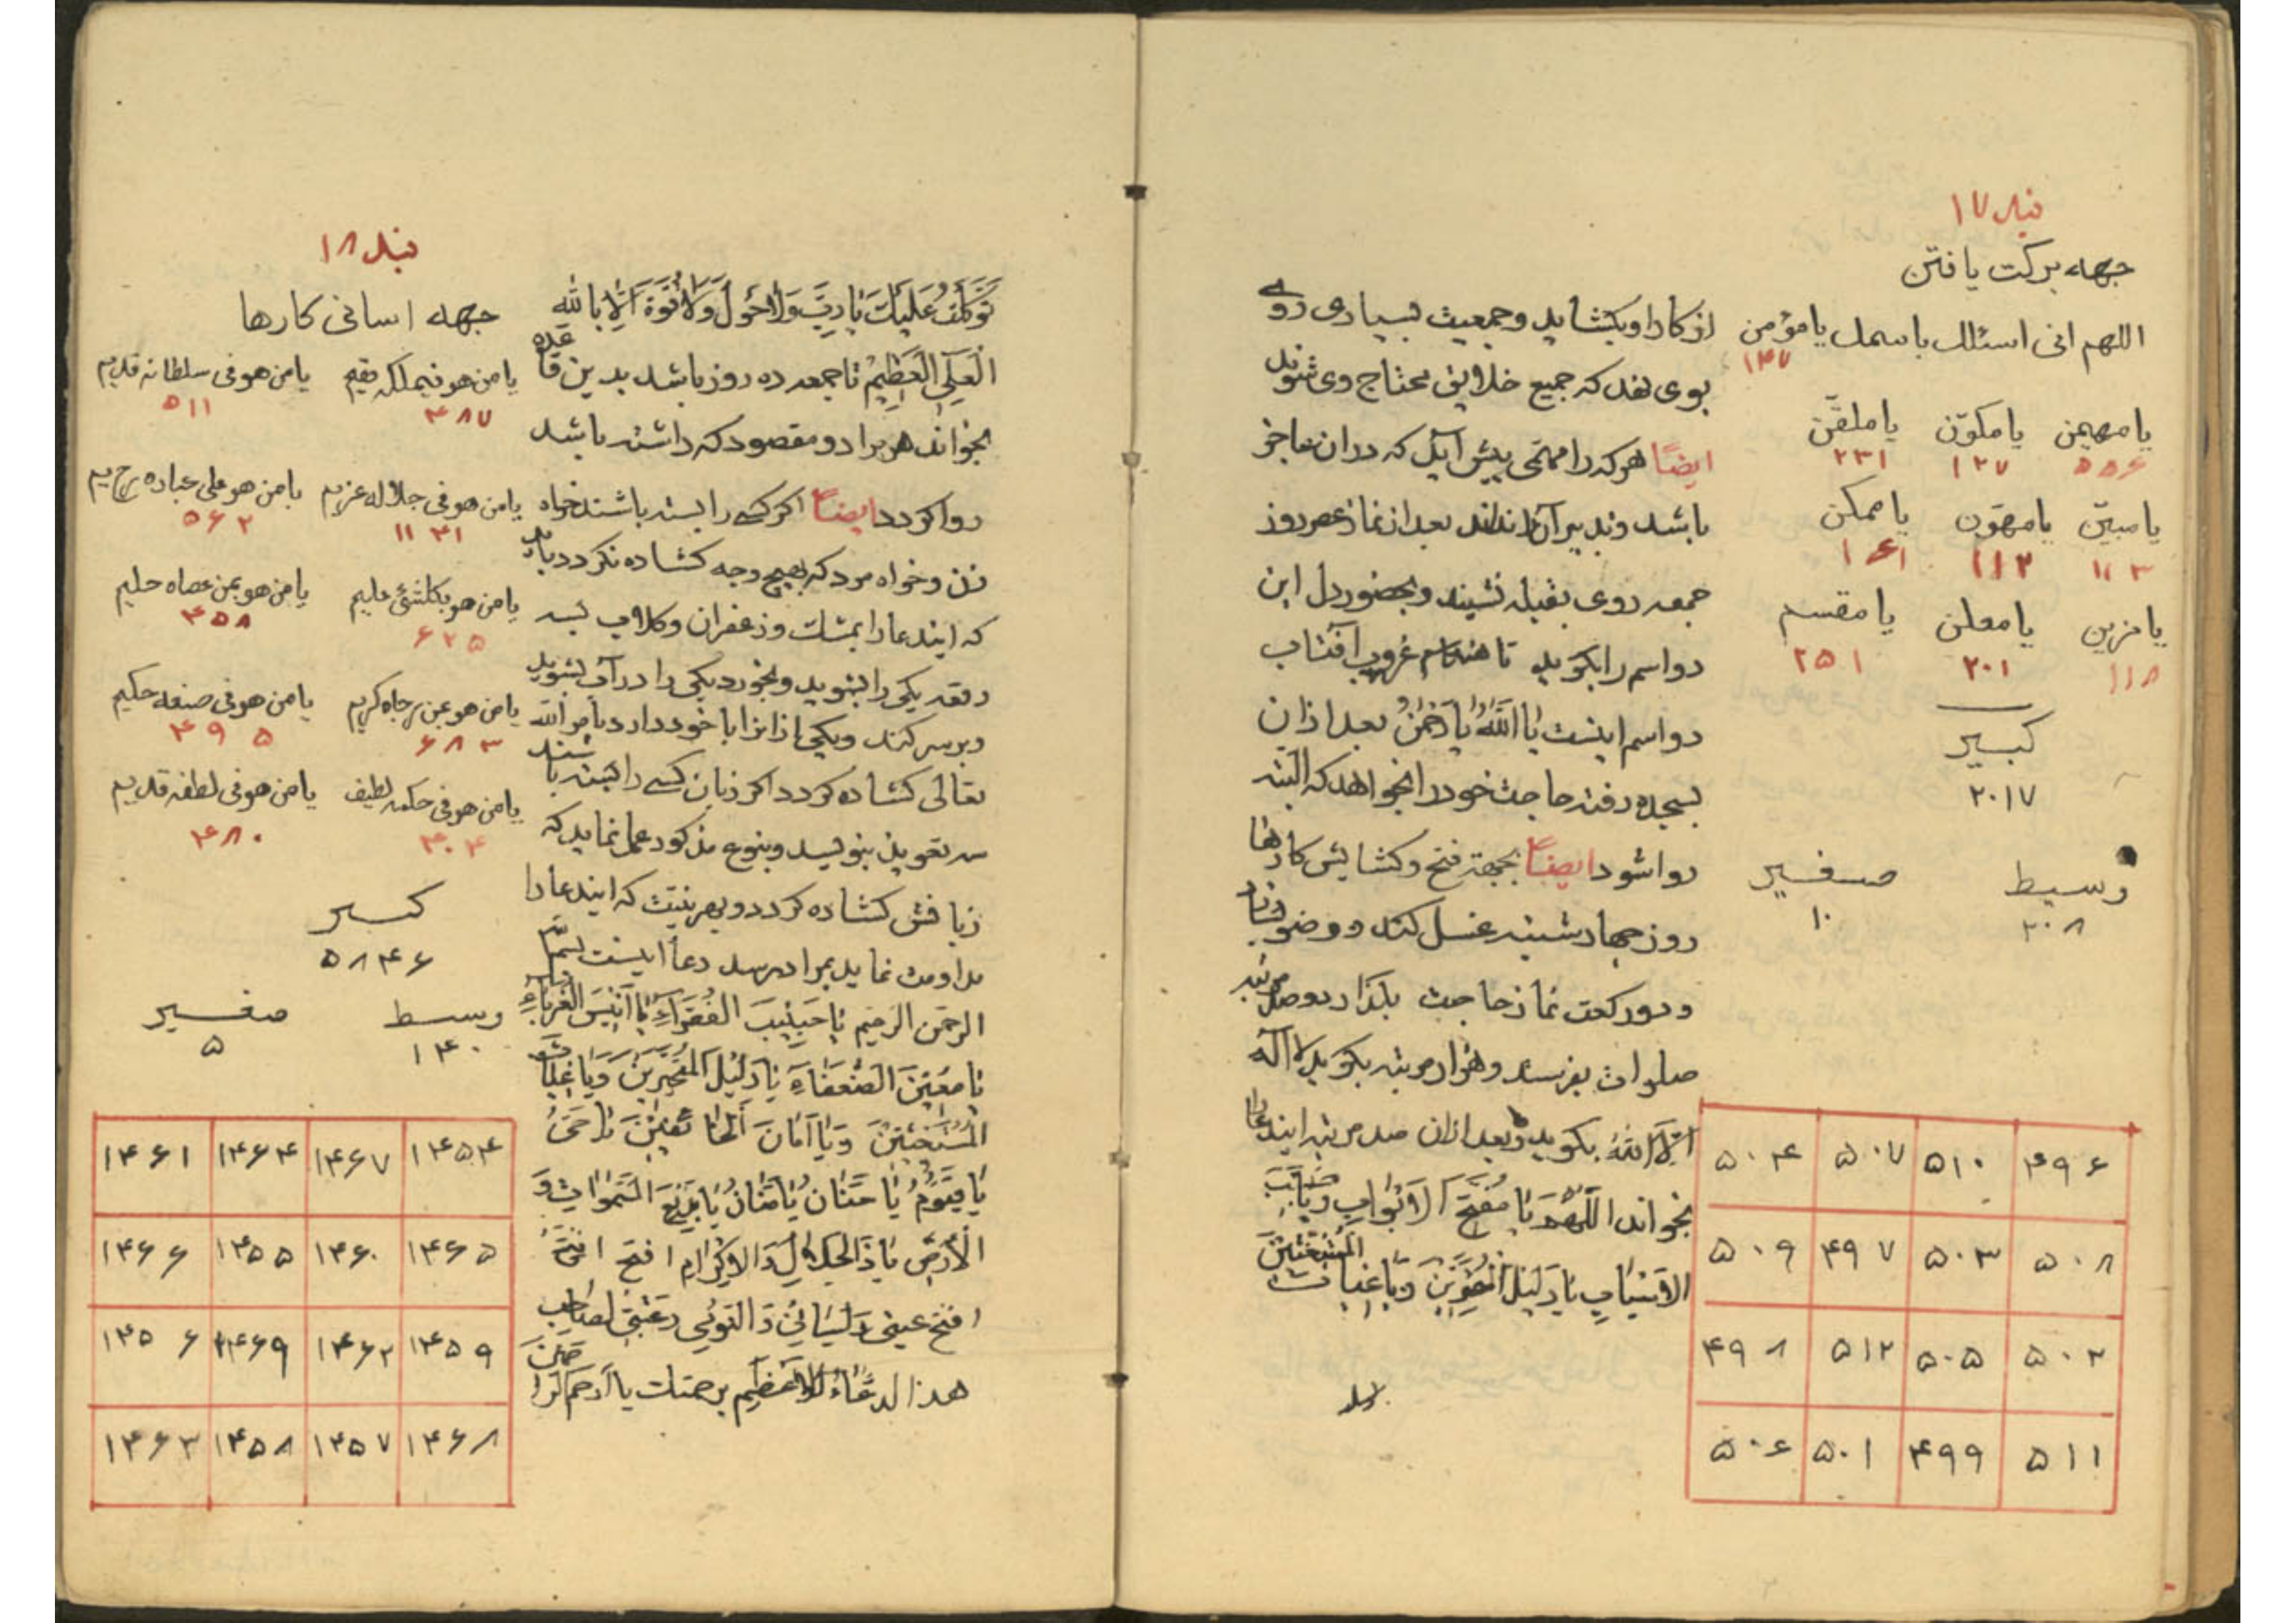 بند ۱۷
جهه برکت یافتن
اللهم انی اسئلك باسمك یا مؤمن
۱۴۷
یا مهیمن یا مکوّن یا ملقّن
۵۵۶ ۱۲۷ ۲۳۱
یا مبیّن یا مهوّن یا ممکن
۱۱۳ ۱۱۲ ۱۶۱
یا مزین یا معلن یا مقسم
۱۱۸ ۲۰۱ ۲۵۱
کبسیر
۲۰۱۷
وسیط صغیر
۲۰۸ ۱۰
۴۹۶ ۵۱۰ ۵۰۷ ۵۰۴
۵۰۸ ۵۰۳ ۴۹۷ ۵۰۹
۵۰۲ ۵۰۵ ۵۱۲ ۴۹۸
۵۱۱ ۴۹۹ ۵۰۱ ۵۰۶
از کار او بکشاید و جمعیت بسیاری روی
بوی نهد که جمیع خلایق محتاج وی شوند
ایضاً هر که را مهمّی پیش آید که در ان عاجز
باشد و تدبیر آن نداند بعد از نماز عصر روز
جمعه روی بقبله نشیند و بحضور دل این
دو اسم را بکوید تا هنکام غروب آفتاب
دو اسم اینست یا اللّهُ یا رَحْمٰنُ بعد از ان
بسجده رفته حاجت خود را بخواهد که البته
روا شود ایضاً بجهة فتح و کشایش کارها
روز چهارشنبه غسل کند و وضو بسازد
و دو رکعت نماز حاجت بکذارد و صد مرتبه
صلوات بفرستد و هزار مرتبه بکوید لا اله
اِلّا اللّه بکوید و بعد از ان صد مرتبه ایندعا را
بخواند اللّهُمَّ یا مُفَتِّحَ الاَبْوابِ وَ یا مُسَبِّبَ
الاَسْبابِ یا دَلیلَ الْمُتَحَیِّرینَ وَ یا غِیاثَ الْمُسْتَغیثینَ
تَوَکَّلْتُ عَلَیْكَ یا رَبِّ وَ لا حَوْلَ وَ لا قُوَّةَ اِلّا بِاللّهِ
الْعَلِیِّ الْعَظیمِ تا جمعه ده روز باشد بدین قاعده
بخواند هر مراد و مقصود که داشته باشد
روا کردد ایضاً اکر کسی را بسته باشند خواه
زن و خواه مرد که بهیچ وجه کشاده نکردد باید
که ایندعا را بمشك و زعفران و کلاب بسه
رقعه یکی را بشوید و بخورد یکی را در آب بشوید
و بر سر کند و یکی از انرا با خود دارد بامر الله
تعالی کشاده کردد اکر زبان کسی را بسته باشند
سه تعویذ بنویسد و بنوع مذکور عمل نماید که
زبانش کشاده کردد و بهر نیت که ایندعا را
مداومت نماید بمراد رسد دعا اینست بسم الله
الرحمن الرحیم یا حَبیبَ الفُقَراءِ یا اَنیسَ الْغُرَباءِ
یا مُعینَ الضُّعَفاءِ یا دَلیلَ الْمُتَحَیِّرینَ وَ یا غِیاثَ
الْمُسْتَغیثینَ وَ یا اَمانَ الْخائِفینَ یا حَیُّ
یا قَیُّومُ یا حَنّانُ یا مَنّانُ یا بَدیعَ السَّمواتِ وَ
الْاَرْضِ یا ذَا الْجَلالِ وَ الْاِکْرامِ افتح افتح
افتح عینی وَ لِسانی لصاحِبِ
هذا الدعاء العَظیم برحمتك یا اَرحم الراحمینَ
بند ۱۸
جهه اسانی کارها
یا من هو فی ملکه مقیم یا من هو فی سلطانه قدیم
۴۸۷ ۵۱۱
یا من هو فی جلاله عزیم یا من هو علی عباده رحیم
۱۱۳۱ ۵۶۲
یا من هو بکلشئ علیم یا من هو بمن عصاه حلیم
۶۲۵ ۴۵۸
یا من هو بمن رجاه کریم یا من هو فی صنعه حکیم
۶۸۳ ۴۹۵
یا من هو فی حکمه لطیف یا من هو فی لطفه قدیم
۴۰۴ ۴۸۰
کبسیر
۵۸۴۶
وسیط صغیر
۱۴۰ ۵
۱۴۵۴ ۱۴۶۷ ۱۴۶۴ ۱۴۶۱
۱۴۶۵ ۱۴۶۰ ۱۴۵۵ ۱۴۶۶
۱۴۵۹ ۱۴۶۲ ۱۴۶۹ ۱۴۵۶
۱۴۶۸ ۱۴۵۷ ۱۴۵۸ ۱۴۶۳